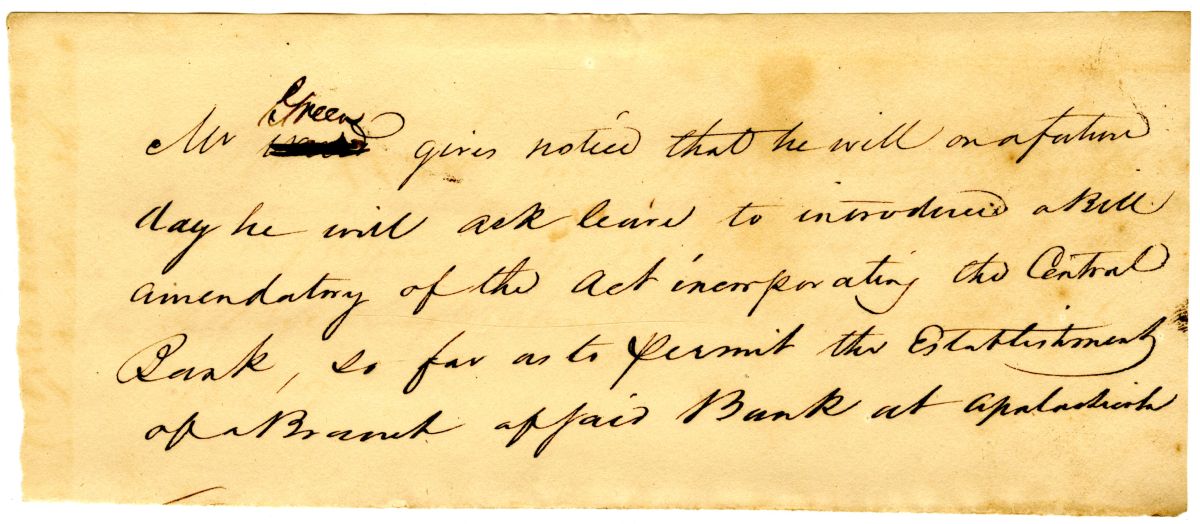 Mr Green gives notice that he will on a future
day he will ask leave to introduce a Bill
amendatory of the Act incorporating the Central
Bank, so far as to permit the Establishment
of a Branch of said Bank at Apalachicola